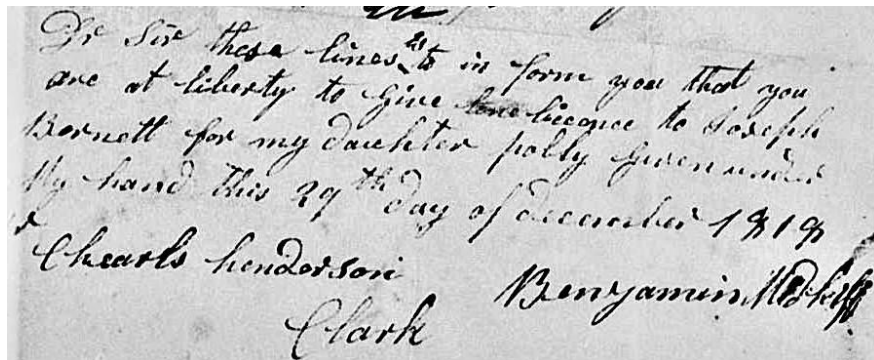 Dr Sir these lines is to in form you that you
are at liberty to give licence to Joseph
Bornett for my dauhter polly Given under
My hand this 29th day of december 1818
Chearls henderson
Benjamin Medkiff
Clark